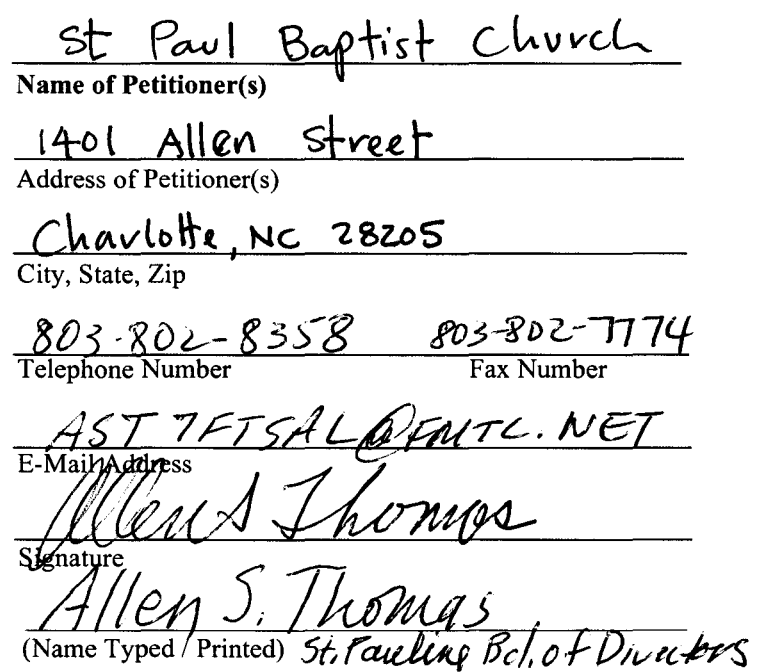 St Paul Baptist Church
Name of Petitioner(s)
1401 Allen Street
Address of Petitioner(s)
Charlotte, NC 28205
City, State, Zip
803-802-8358 803-802-7774
Telephone Number Fax Number
AST7FTSAL@FMTC.NET
E-Mail Address
Allen S Thomas
Signature
Allen S. Thomas
(Name Typed / Printed) St. Pauline Bd. of Directors